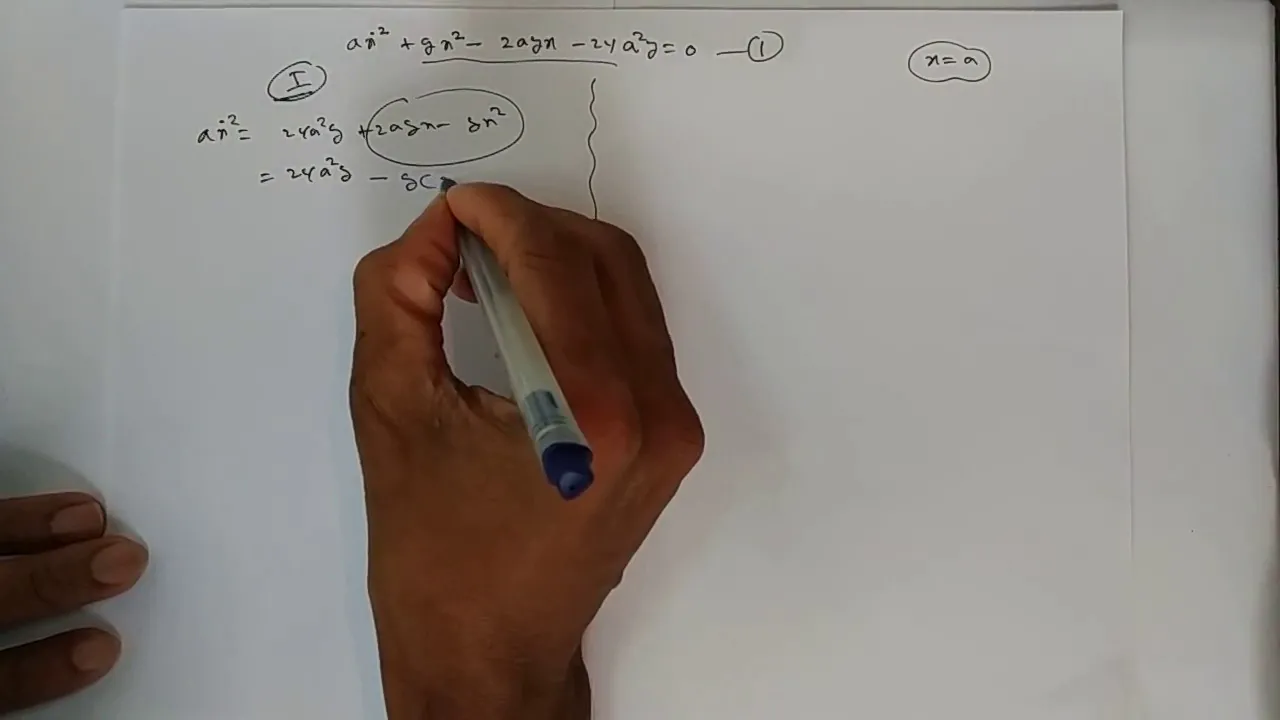 aẋ² + gx² − 2agx − 24a²g = 0 — ①
x = a
I
aẋ² = 24a²g + 2agx − gx²
= 24a²g − g(